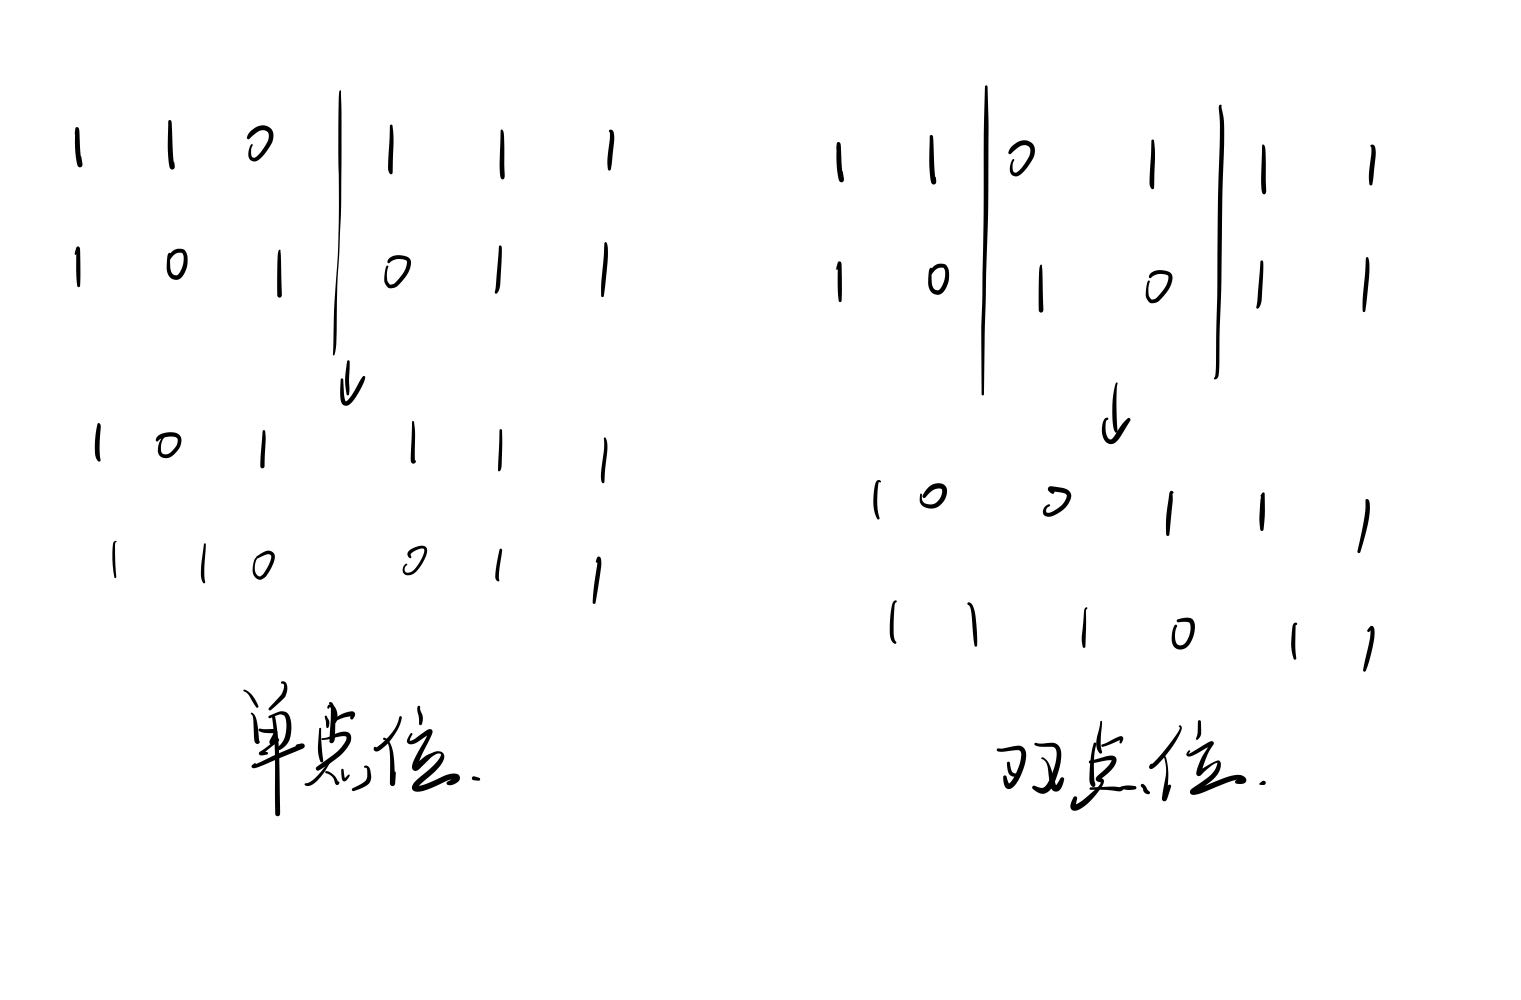 1 1 0 1 1 1
1 0 1 0 1 1
1 0 1 1 1 1
1 1 0 0 1 1
单点位.
1 1 0 1 1 1
1 0 1 0 1 1
1 0 0 1 1 1
1 1 1 0 1 1
双点位.